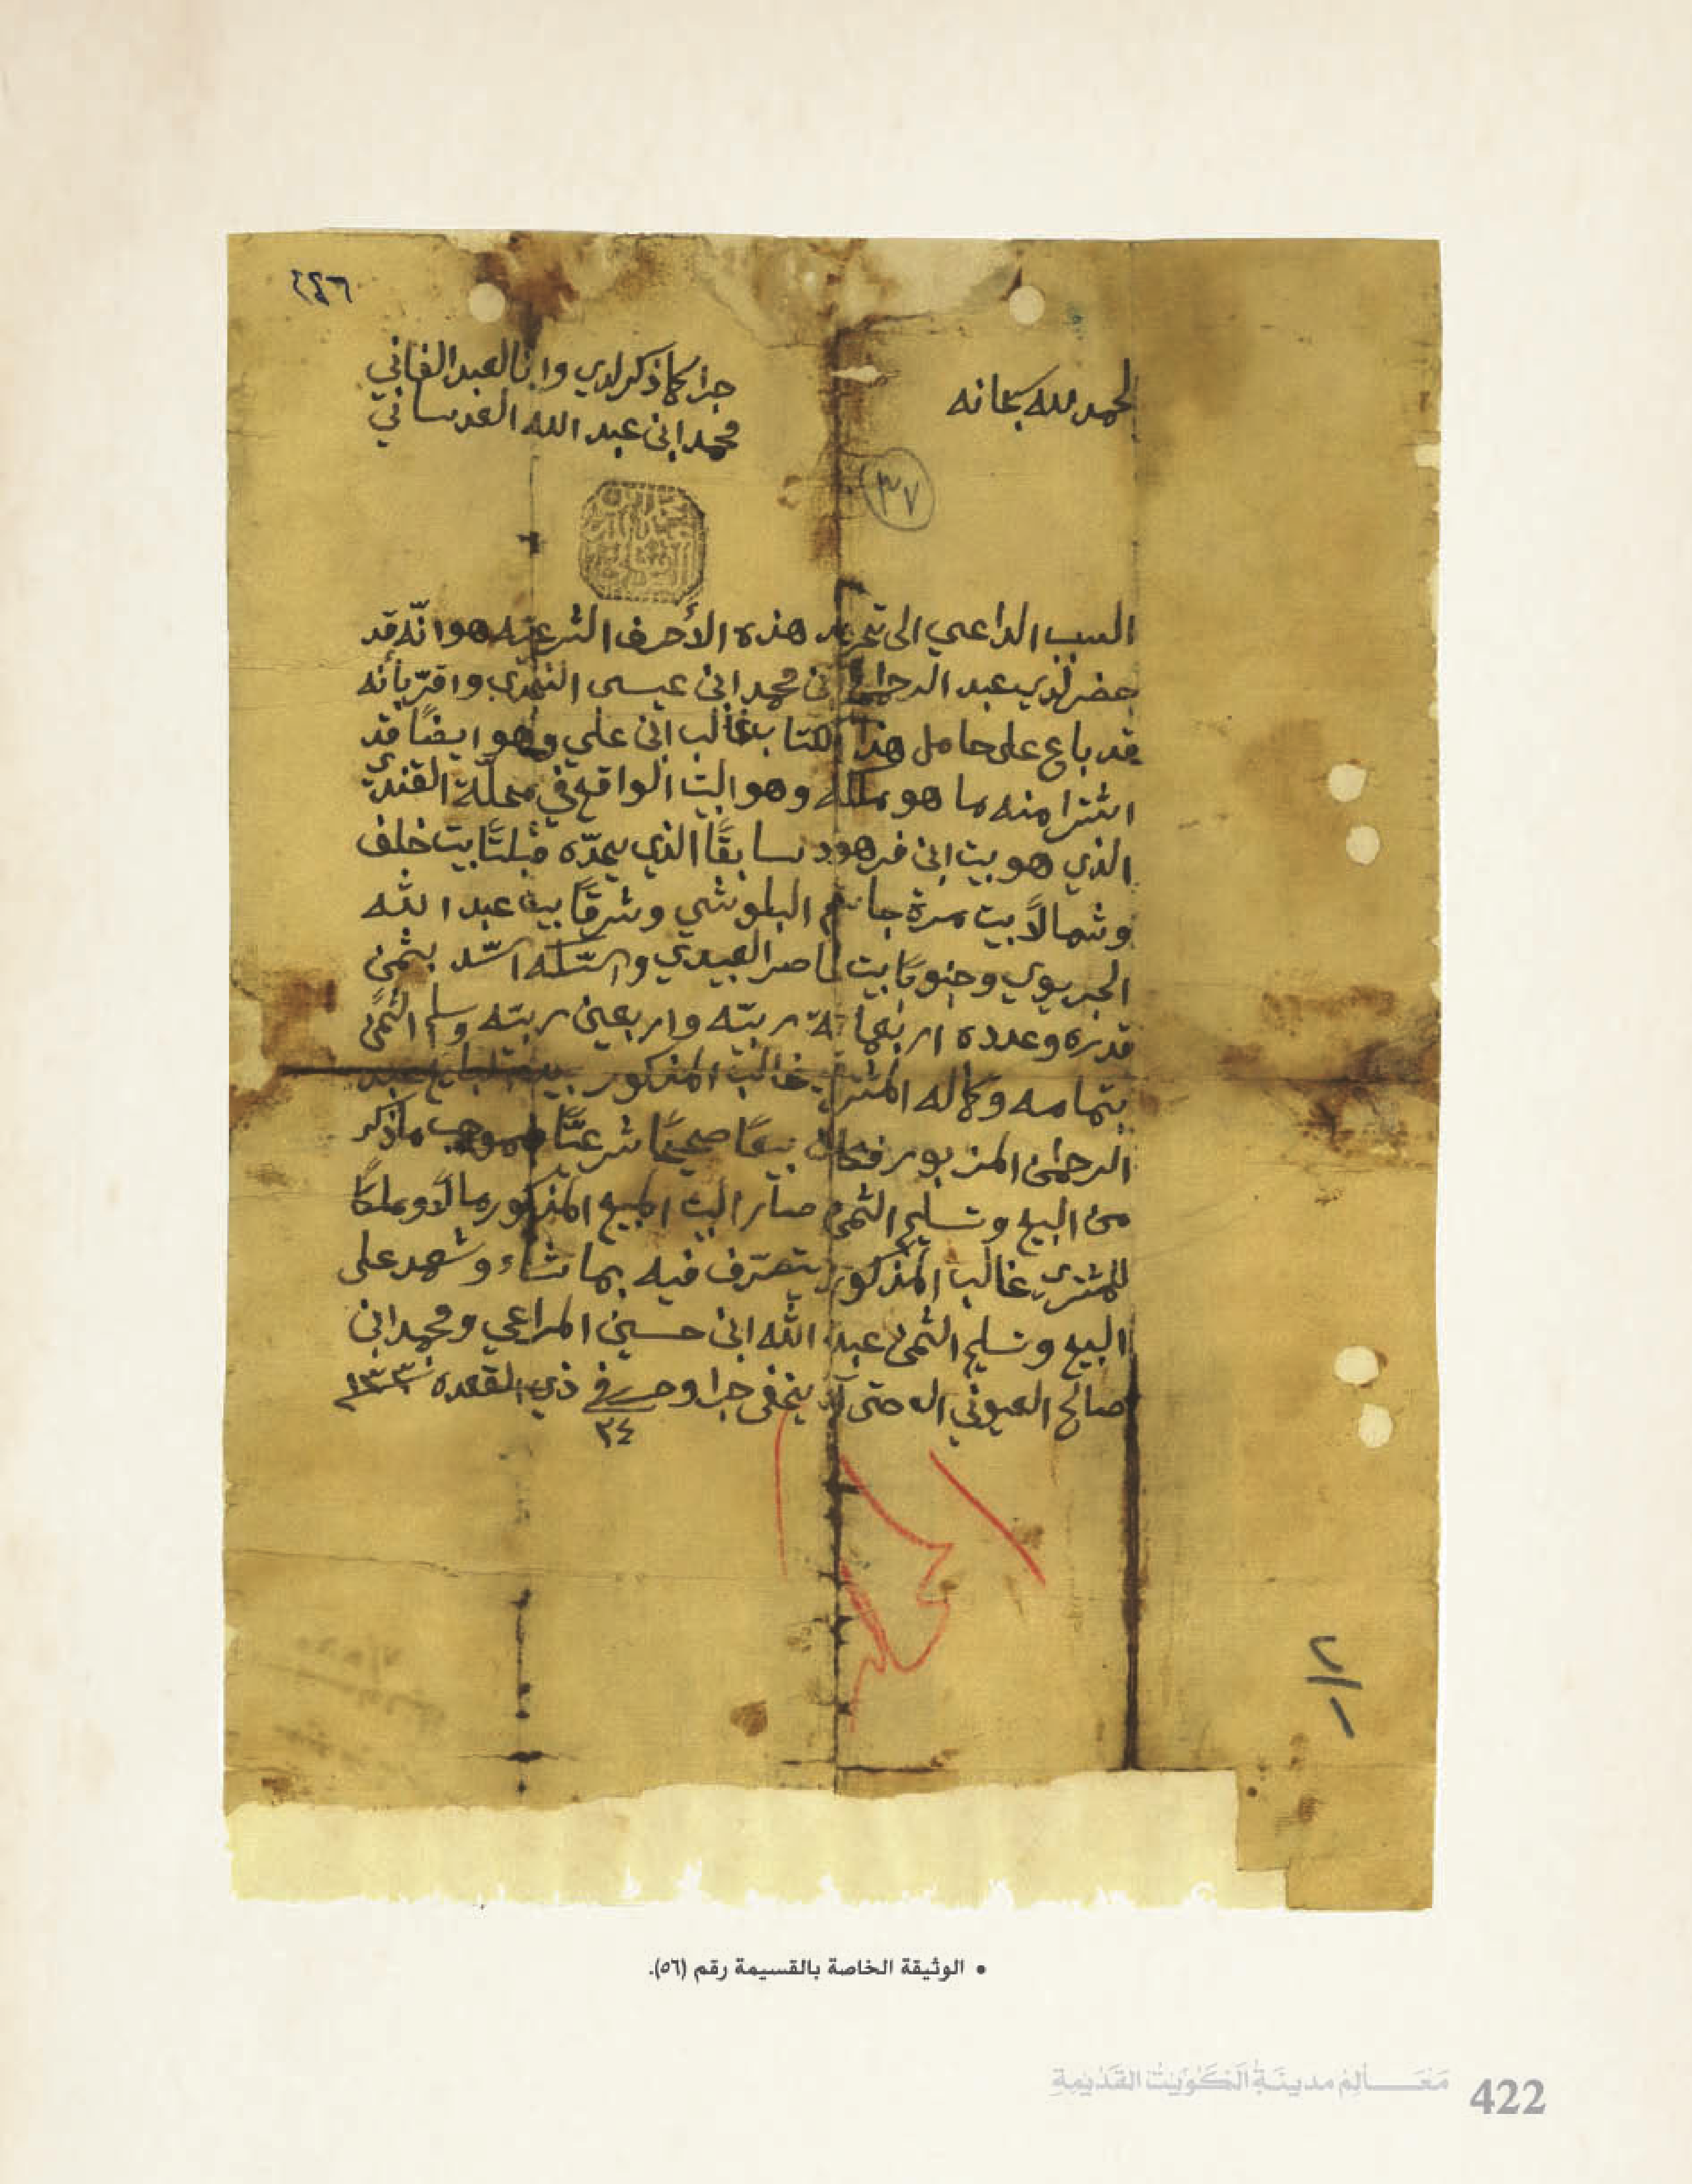 ٤٤٦
الحمد لله سبحانه
جرا كما ذكر لدي وانا العبد الفاني
محمد ابن عبد الله العدساني
٣٧
السبب الداعي الى تحرير هذه الأحرف الشرعيّه هو انّه قد
حضر لدي عبد الرحمن ابن محمد ابن عيسى واقرّ بأنه
قد باع على حامل هذا الكتاب غالب ابن علي وهو ايضًا قد
اشترا منه ما هو ملكه وهو البيت الواقع في محلّة
الذي هو بيت ابن فرهود سابقًا الذي يحدّه قبلتًا بيت خلف
وشمالًا بيت مرة جاسم البلوشي وشرقًا بيت عبد الله
الجريوي وجنوبًا بيت ناصر العبيدي والسّكه اسّد بثمن
قدره وعدده اربعماية ربيّه واربعين ربيّه وسلم الثمن
بتمامه وكماله المشتري غالب المذكور بيد البايع عبد
الرحمن المزبور فكان بيعًا صحيحًا شرعيًّا فبموجب ما ذكر
من البيع وتسليم الثمن صار البيت المبيع المذكور مالًا وملكًا
للمشتري غالب المذكور يتصرّف فيه بما شاء وشهد على
البيع وتسليم الثمن عبد الله ابن حسين المراغي ومحمد ابن
صالح العيوني اله حتى لا يخفى جرا وحرر في ذي القعده ١٣٣٣
٢٤
• الوثيقة الخاصة بالقسيمة رقم (٥٦).
مَعَــالِمُ مدينَةِ الكُوَيْت القَدِيمَةِ
422